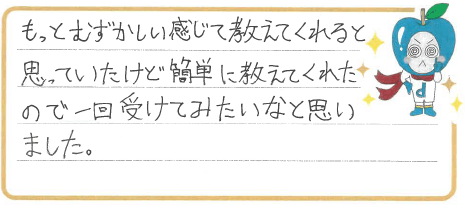 もっとむずかしい感じで教えてくれると
思っていたけど簡単に教えてくれた
ので一回受けてみたいなと思い
ました。
d